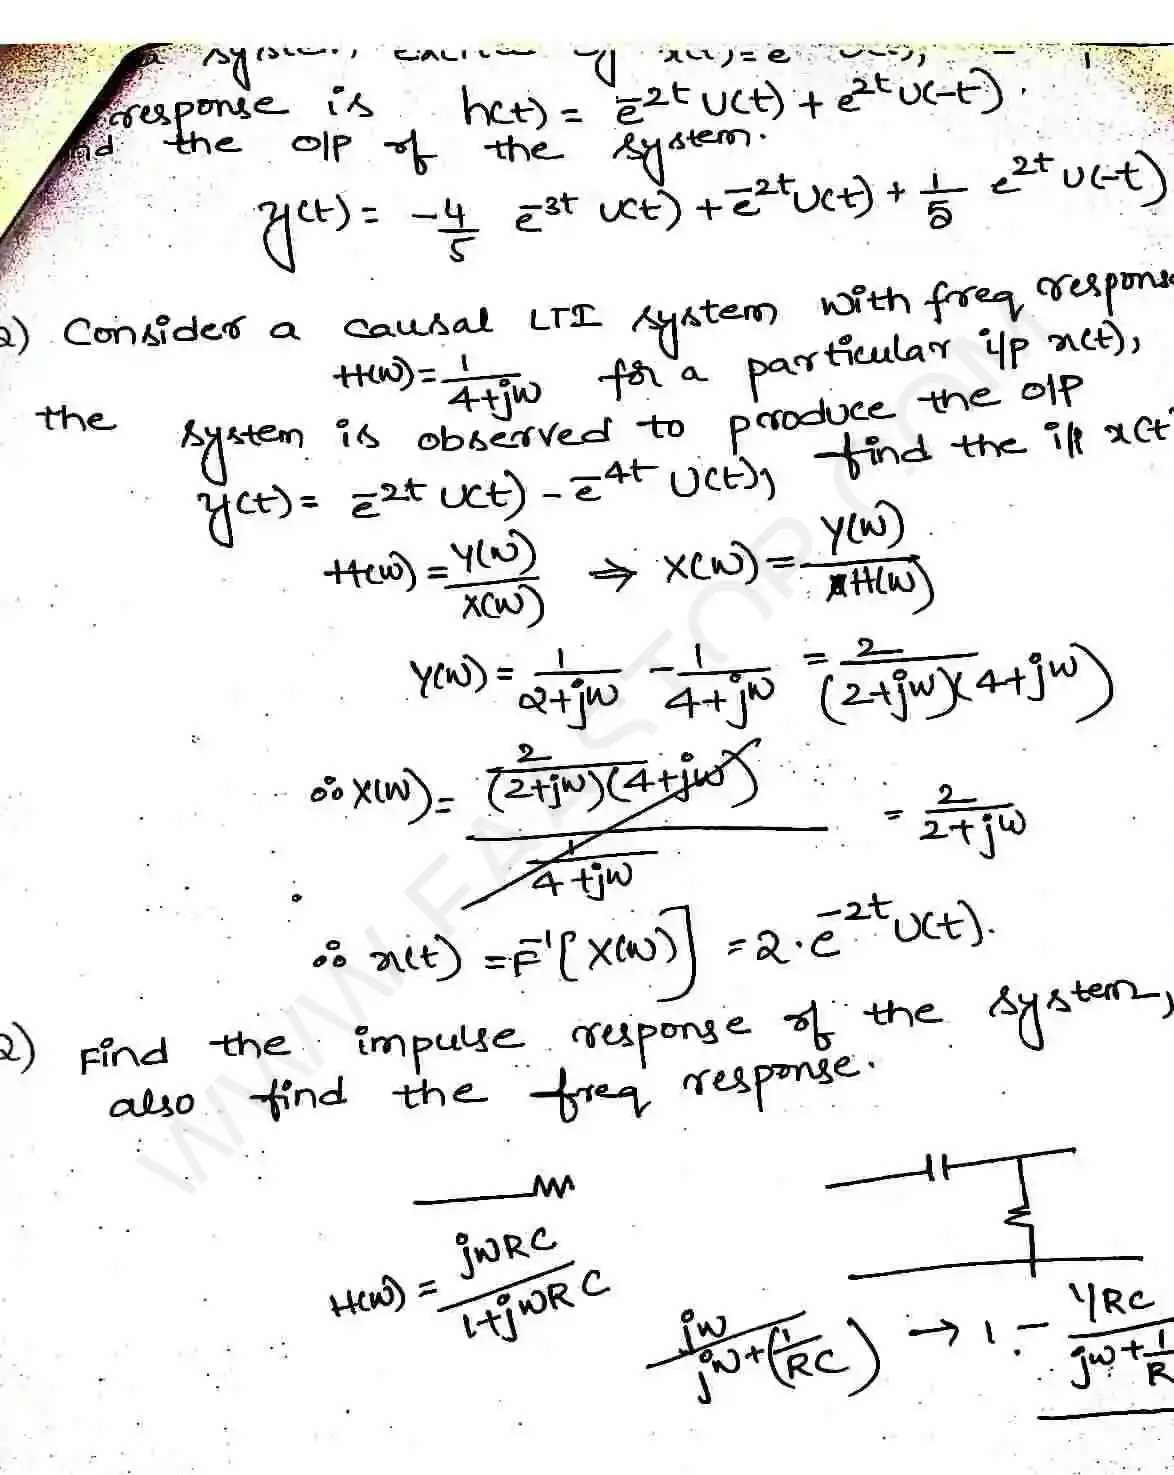 response is h(t) = e^-2t U(t) + e^2t U(-t).
the o/p of the system.
y(t) = -4/5 e^-3t U(t) + e^-2t U(t) + 1/5 e^2t U(-t)
2) Consider a causal LTI system with freq response
H(w) = 1/(4+jw) for a particular i/p x(t),
the system is observed to produce the o/p
y(t) = e^-2t U(t) - e^-4t U(t), find the i/p x(t
H(w) = Y(w)/X(w) ⇒ X(w) = Y(w)/H(w)
Y(w) = 1/(2+jw) - 1/(4+jw) = 2/((2+jw)(4+jw))
∴ X(w) = (2/((2+jw)(4+jw)))/(1/(4+jw)) = 2/(2+jw)
∴ x(t) = F^-1[X(w)] = 2·e^-2t U(t).
2) Find the impulse response of the system,
also find the freq response.
H(w) = jwRC/(1+jwRC)
jw/(jw+(1/RC)) → 1 - (1/RC)/(jw+1/R
WWW.FAASTOP.COM